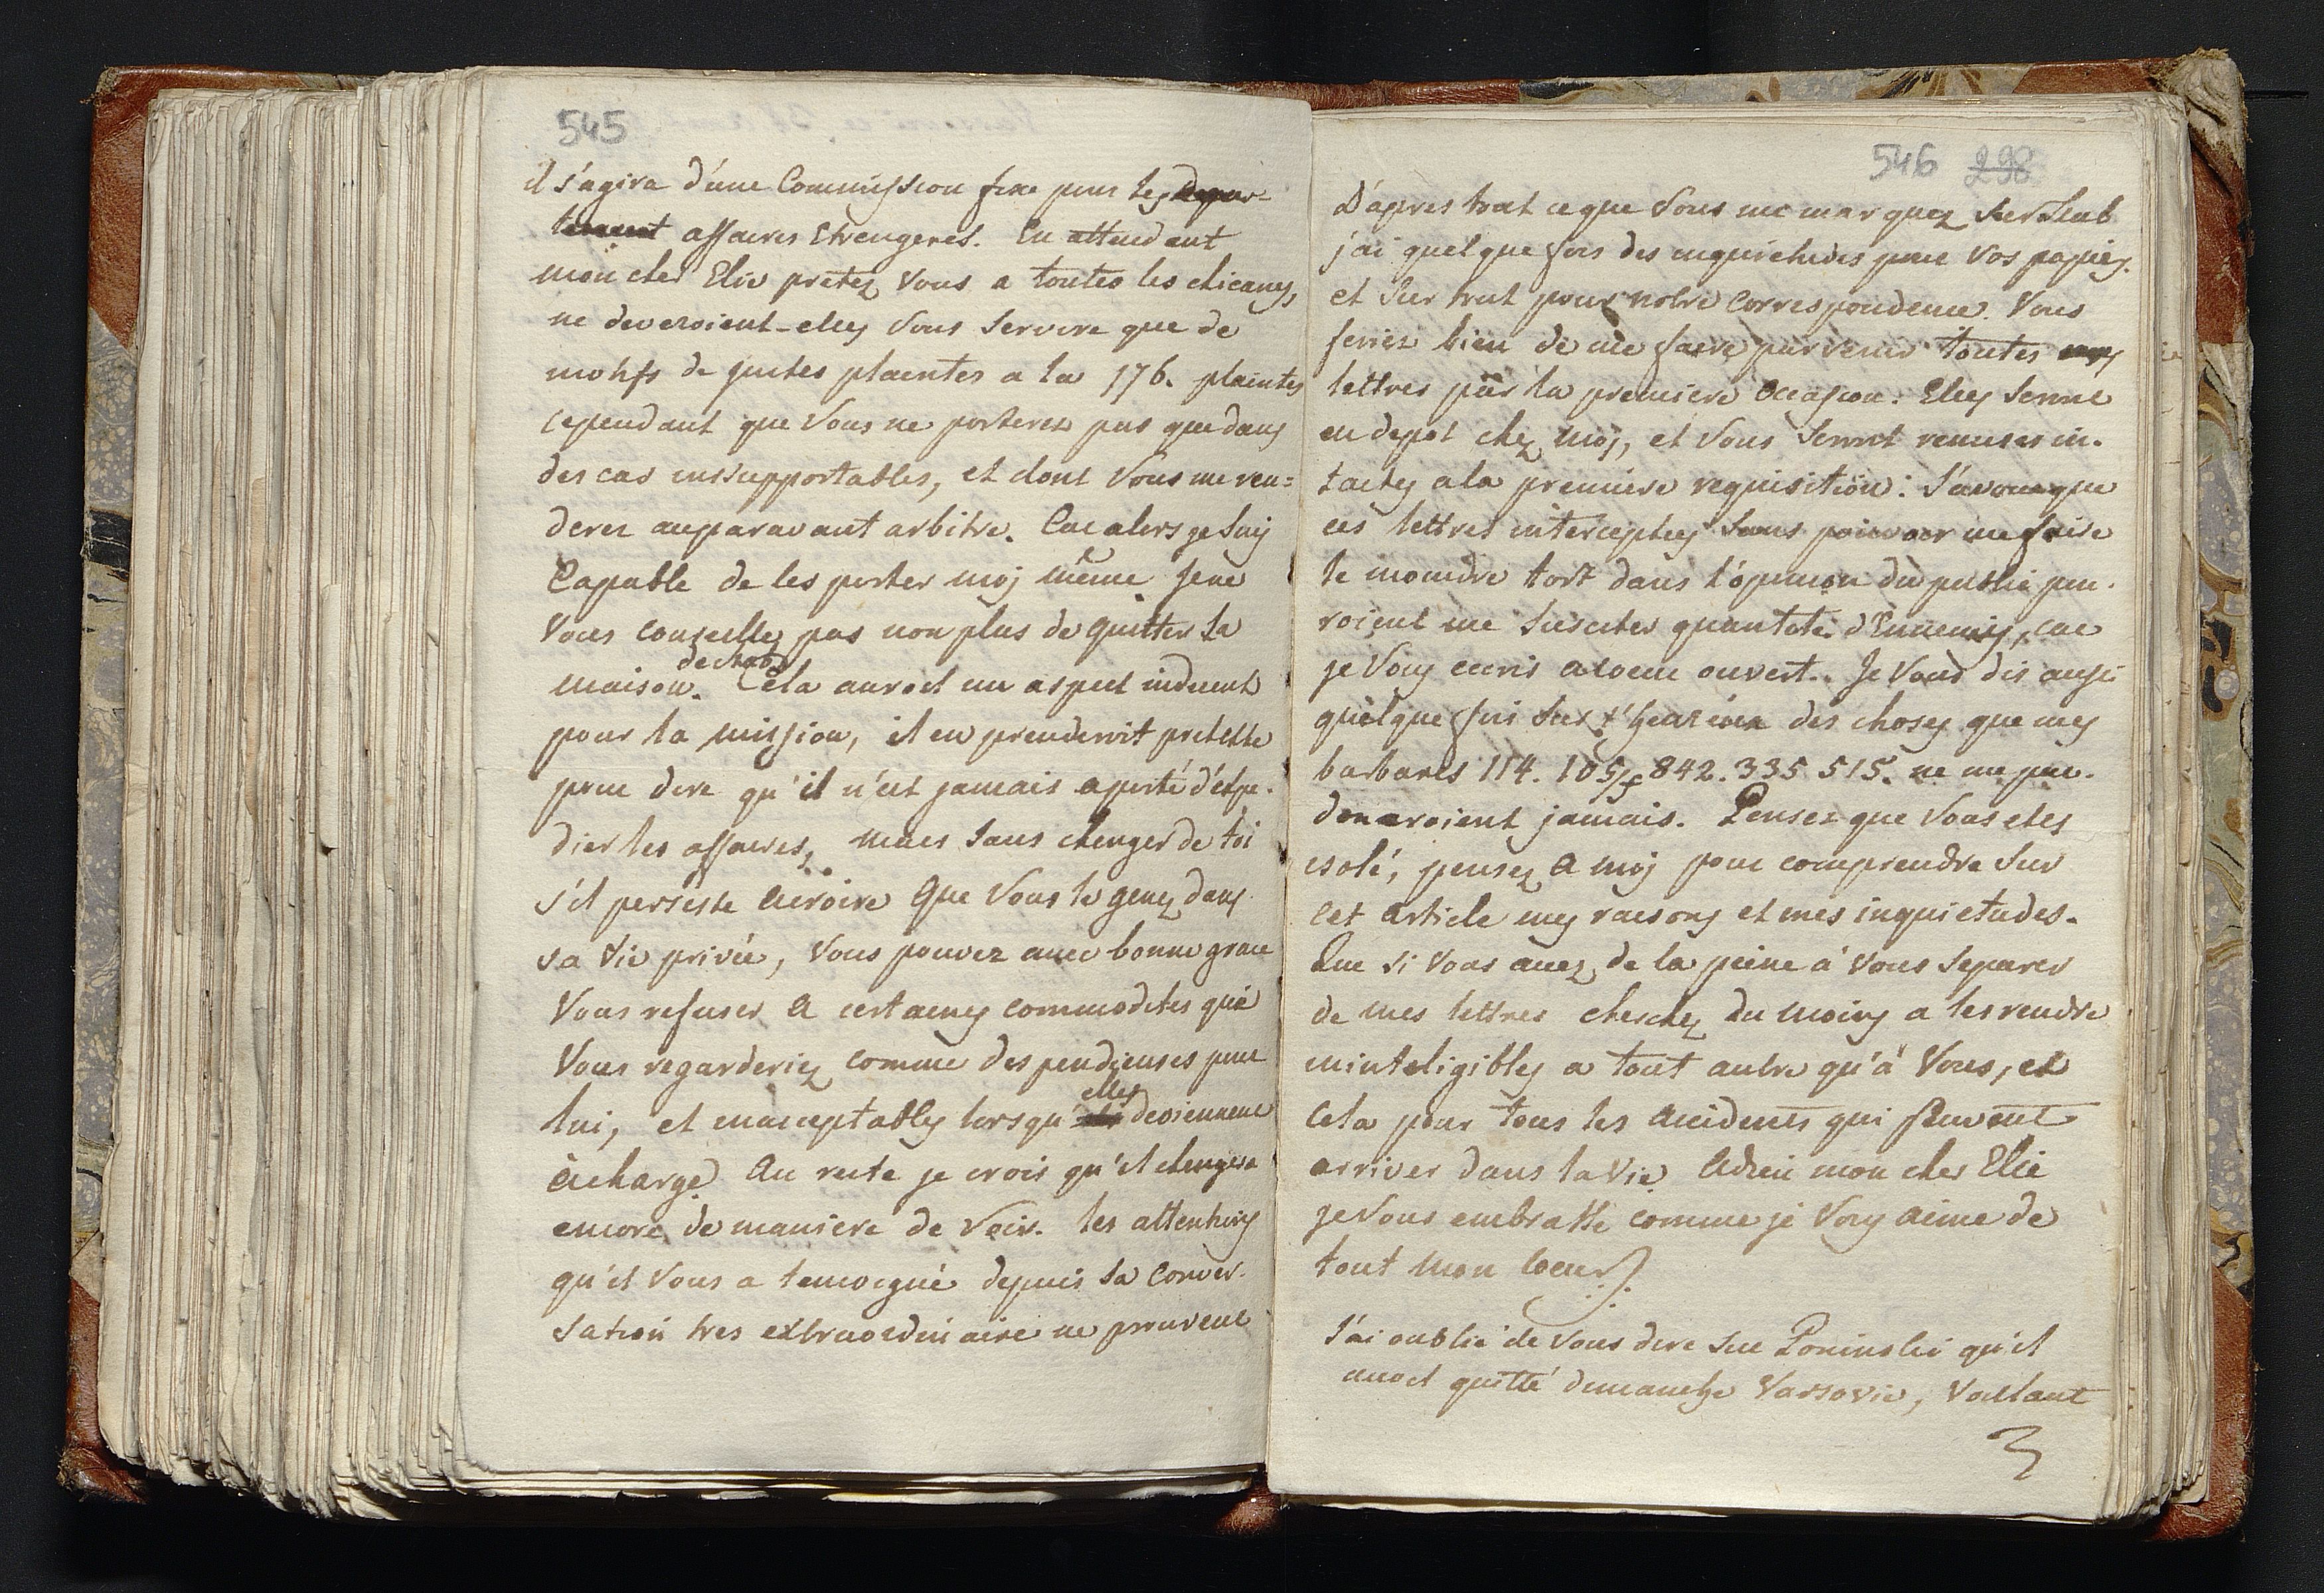 545
il s'agira d'une Commission fixe pour les depar-
tement affaires Etrengeres. En attendant
mon cher Elie pretez Vous a toutes les chicanes,
ne deveroient-elles Vous Servire que de
motifs de justes plaintes a la 176. plaintes
cependant que Vous ne porterez pas que dans
des cas inssupportables, et dont Vous me ren=
derez auparavant arbitre. Car alors je Suis
Capable de les porter moj même Je ne
Vous conseilles pas non plus de quitter la
maison. de Stab Cela auroit un aspect indecent
pour la mission, il en prenderoit pretexte
pour dire qu'il n'est jamais a porté d'expe-
dier les affaires, mais Sans chenger de toi
s'il persiste acroire Que Vous le genez dans
sa Vie privée, Vous pouvez avec bonne grace
Vous refuser a certaines commodites que
Vous regarderiez comme despendieuses pour
lui, et inacceptables lorsqu' elles deviennent
àcharge. Au reste je crois qu'il chengera
encore de maniere de Voir. les attentions
qu'il Vous a temoigné depuis Sa Conver-
sation tres extraordinaire ne prouvent
546 298
D'apres tout ce que Vous me marquez Sur Stab
j'ai quelque fois des inquietudes pour Vos papiers.
et Sur tout pour notre Correspondence. Vous
feriez bien de me faire parvenir toutes mes
lettres par la premiere Occasion. Elles Seront
en depot chez moj, et Vous Seront remises in-
tactes a la premiere requisition. J'avoue que
ces lettres interceptes Sans pouvoir me faire
le moindre tort dans l'opinion du public pou-
roient me Susciter quantité d'Ennemis, car
je Vous ecris a coeur ouvert. Je Vous dis aussi
quelque fois Sur des choses que mes
barbares 114. 105 842. 335 515. ne me par-
donneroient jamais. Pensez que Vous etes
isolé, pensez a moj pour comprendre Sur
cet article mes raisons et mes inquietudes.
Que si Vous avez de la peine à Vous Separer
de mes lettres cherchez du moins a les rendre
inintelligibles a tout autre qu'à Vous, et
Cela pour tous les accidents qui peuvent
arriver dans la Vie. Adieu mon cher Elie
je Vous embrasse comme je Vous aime de
tout mon Coeur.
J'ai oublié de Vous dire Sur Poninski qu'il
avoit quitté dimanche Varsovie, Voulant